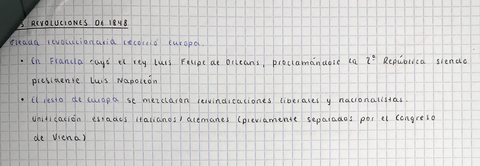 S REVOLUCIONES DE 1848
oleada revolucionaria recorrió Europa.
• En Francia cayó el rey Luis Felipe de Orleans, proclamándose la 2ª República siendo
presidente Luis Napoleón
• El resto de Europa se mezclaron reivindicaciones liberales y nacionalistas.
Unificación estados italianos/alemanes (previamente separados por el Congreso
de Viena)